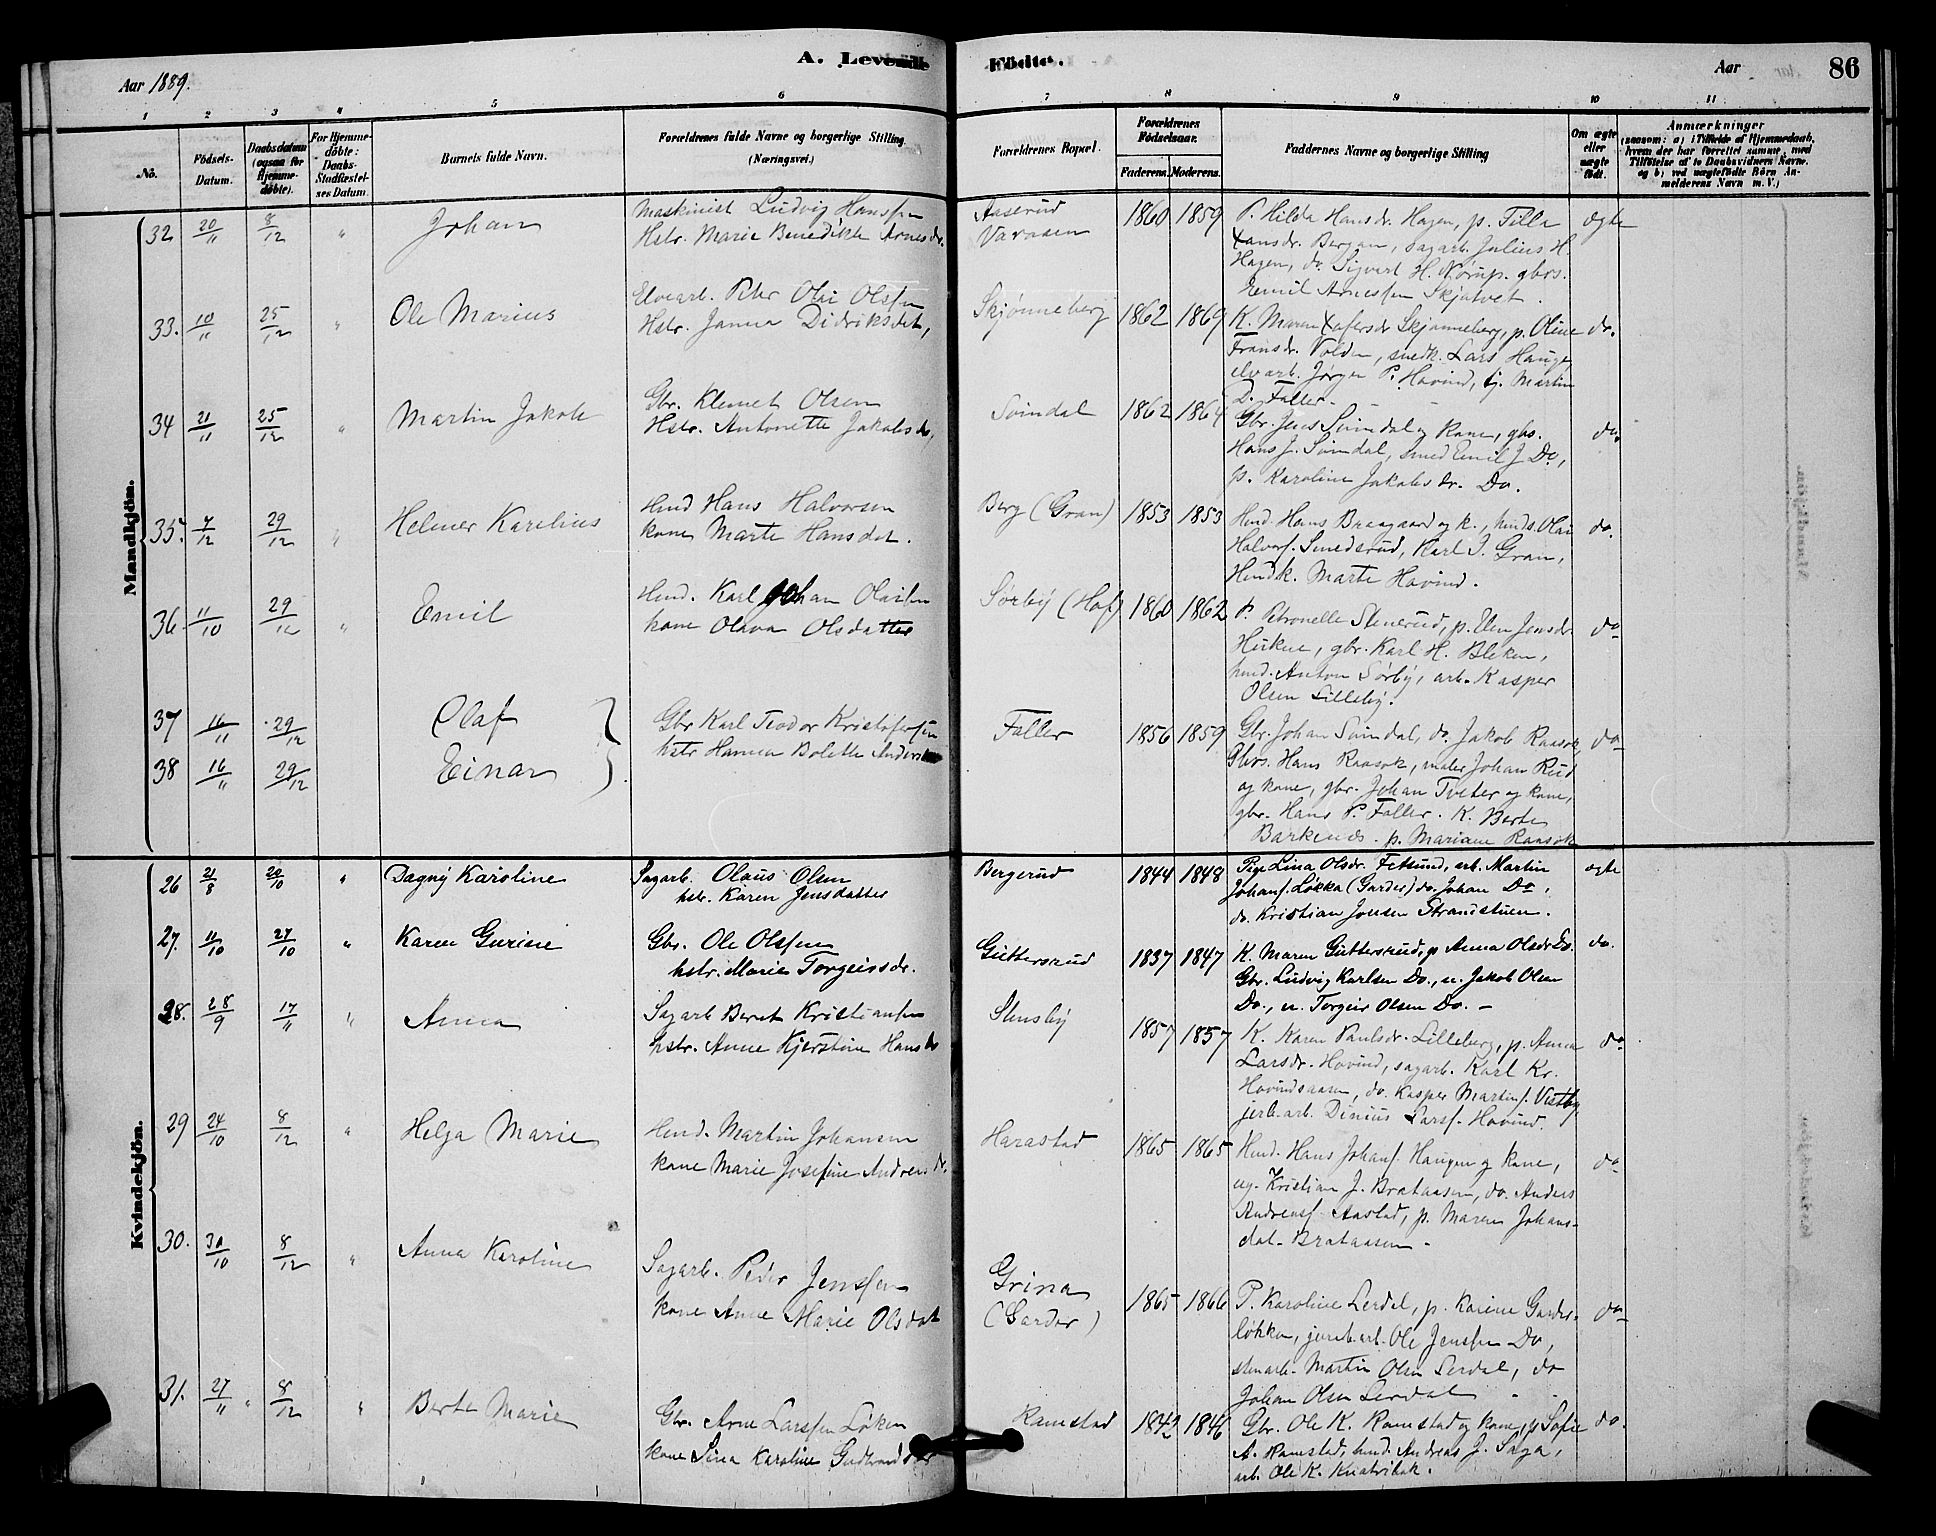 A. Levende Fødte.
Aar 1889.
Aar
86
1 2 3 4 5 6 7 8 9 10 11
No.
Födsels-
Datum.
Daabsdatum
(ogsaa for
Hjemme-
döbte).
For Hjemme-
döbte:
Daabs-
Stadfæstel-
ses Datum.
Barnets fulde Navn.
Forældrenes fulde Navne og borgerlige Stilling
(Næringsvei.)
Forældrenes Bopæl.
Forældrenes
Födselsaar.
Faderens. Moderens.
Faddernes Navne og borgerlige Stilling
Om ægte
eller
uægte
født.
Anmærkninger
(saasom: a) i Tilfælde af Hjemmedaab,
hvem der har forrettet samme, med
Tilföielse af to Daabsvidners Navne,
og b) ved uægtefödte Börn An-
melderens Navn m. V.)
Mandkjön.
32 20/11 8/12 " Johan
Maskinist Ludvig Hanssen
Hstr. Marie Benedikte Arnesdr.
Aaserud
1860 1859
P. Hilda Hansdr. Hagen, p. Tilla
Hansdr. Bergan, sagarb. Julius H.
Hagen, do. Sigvart H. Nørup, gbrs.
Emil Arnessen Skjatvet.
ægte
33. 10/11 25/12 " Ole Marius
Elvearb. Peter Olai Olssen
Hstr. Janna Didriksdat,
Skjønneberg
1862 1869
K. Maren Skjønneberg, p. Oline
Fransdr. Volden, snedk. Lars Hauge,
elvarb. Jørgen P. Hovind, tj. Martin
D. Faller.
do.
34 21/11 25/12 " Martin Jakob
Gbr. Klemet Olsen
Hstr. Antonette Jakobsdr,
Svindal
1862 1864
Gbr. Jens Svindal og kone, gbs.
Hans J. Svindal, smed Emil J. Do,
p. Karoline Jakobsdr. Do.
do.
35. 7/12 29/12 " Helmer Karelius
Hmd Hans Halvorsen
kone Marte Hansdat.
Berg (Gran)
1853 1853
Hmd. Hans Braagaard og k., hmds. Olai
Halvors. Smedsrud, Karl J. Gran,
Hmdk. Marte Hovind.
do.
36. 11/10 29/12 " Emil
Hmd. Karl Johan Olaisen
kone Olava Olsdatter
Sørby (Hof)
1860 1862
P. Petronelle Stenerud, p. Elen Jensdr.
gbr. Karl H. Bleken,
hmd. Anton Sørby, arb. Kasper
Olsen Lilleby.
do
37 16/11 29/12 Olaf
38 16/11 29/12 Einar
Gbr Karl Teodor Kristofersen
hstr Hanna Bolette Anders
Faller
1856 1859
Gbr. Johan Svindal, do. Jakob Raasok,
Gbrs. Hans Raasok, maler Johan Rud
og kone, gbr. Johan Tveter og kone,
gbr. Hans P. Faller. K. Berte
p. Mariane Raasok
do
Kvindekjön.
26 21/8 20/10 " Dagny Karoline
Sagarb. Olaus Olsen
hstr. Karen Jensdatter
Bergerud
1844 1848
Pige Lina Olsdr. Fetsund, arb. Martin
Johans. Løkka (Garder) do. Johan Do,
do. Kristian Jonsen Strandstuen.
ægte
27. 11/10 27/10 " Karen Gurine
Gbr. Ole Olssen
hstr. Marie Torgeirsdr.
Guttersrud
1837 1847
K. Maren Guttersrud, p Anna Olsdr Do.
Gbr. Ludvig Karlsen Do, u. Jakob Olsen
Do., u. Torgeir Olsen Do. -
do.
28. 28/9 17/11 " Anna
Sagarb Bernt Kristiansen
hstr. Anne Kjerstine Hansdr
Stensby
1857 1857
K. Karen Paulsdr. Lilleberg, p. Anna
Larsdr. Hovind, sagarb. Karl Kr.
Hovindsaasen, do. Kasper Martins. Vestby
jerb. arb. Dinius Larss. Hovind.
do
29 24/10 8/12 " Helga Marie
Hmd. Martin Johansen
kone Marie Josefine Andreasdr.
Harastad
1865 1865
Hmd. Hans Johans. Haugen og kone,
ug. Kristian J. Brataasen, do. Anders
Andreass. Aastad, p. Maren Johans-
dat. Brataasen -
do
30. 30/10 8/12 " Anna Karoline
Sagarb. Peder Jenssen
kone Anne Marie Olsdat
Grina
(Garder)
1865 1866
P. Karoline Lerdal, p. Karine Garder-
løkken, jernb. arb. Ole Jenssen Do,
stenarb. Martin Olsen Lerdal, do
Johan Olsen Lerdal
do
31. 27/11 8/12 " Berte Marie
Gbr. Arne Larssen Løken
kone Lina Karoline Gudbrandsdr
Ramstad
1842 1846
Gbr. Ole K. Ramstad og kone, p Sofie
A. Ramstad, hmd. Andreas J. Saga,
arb. Ole K.
do.